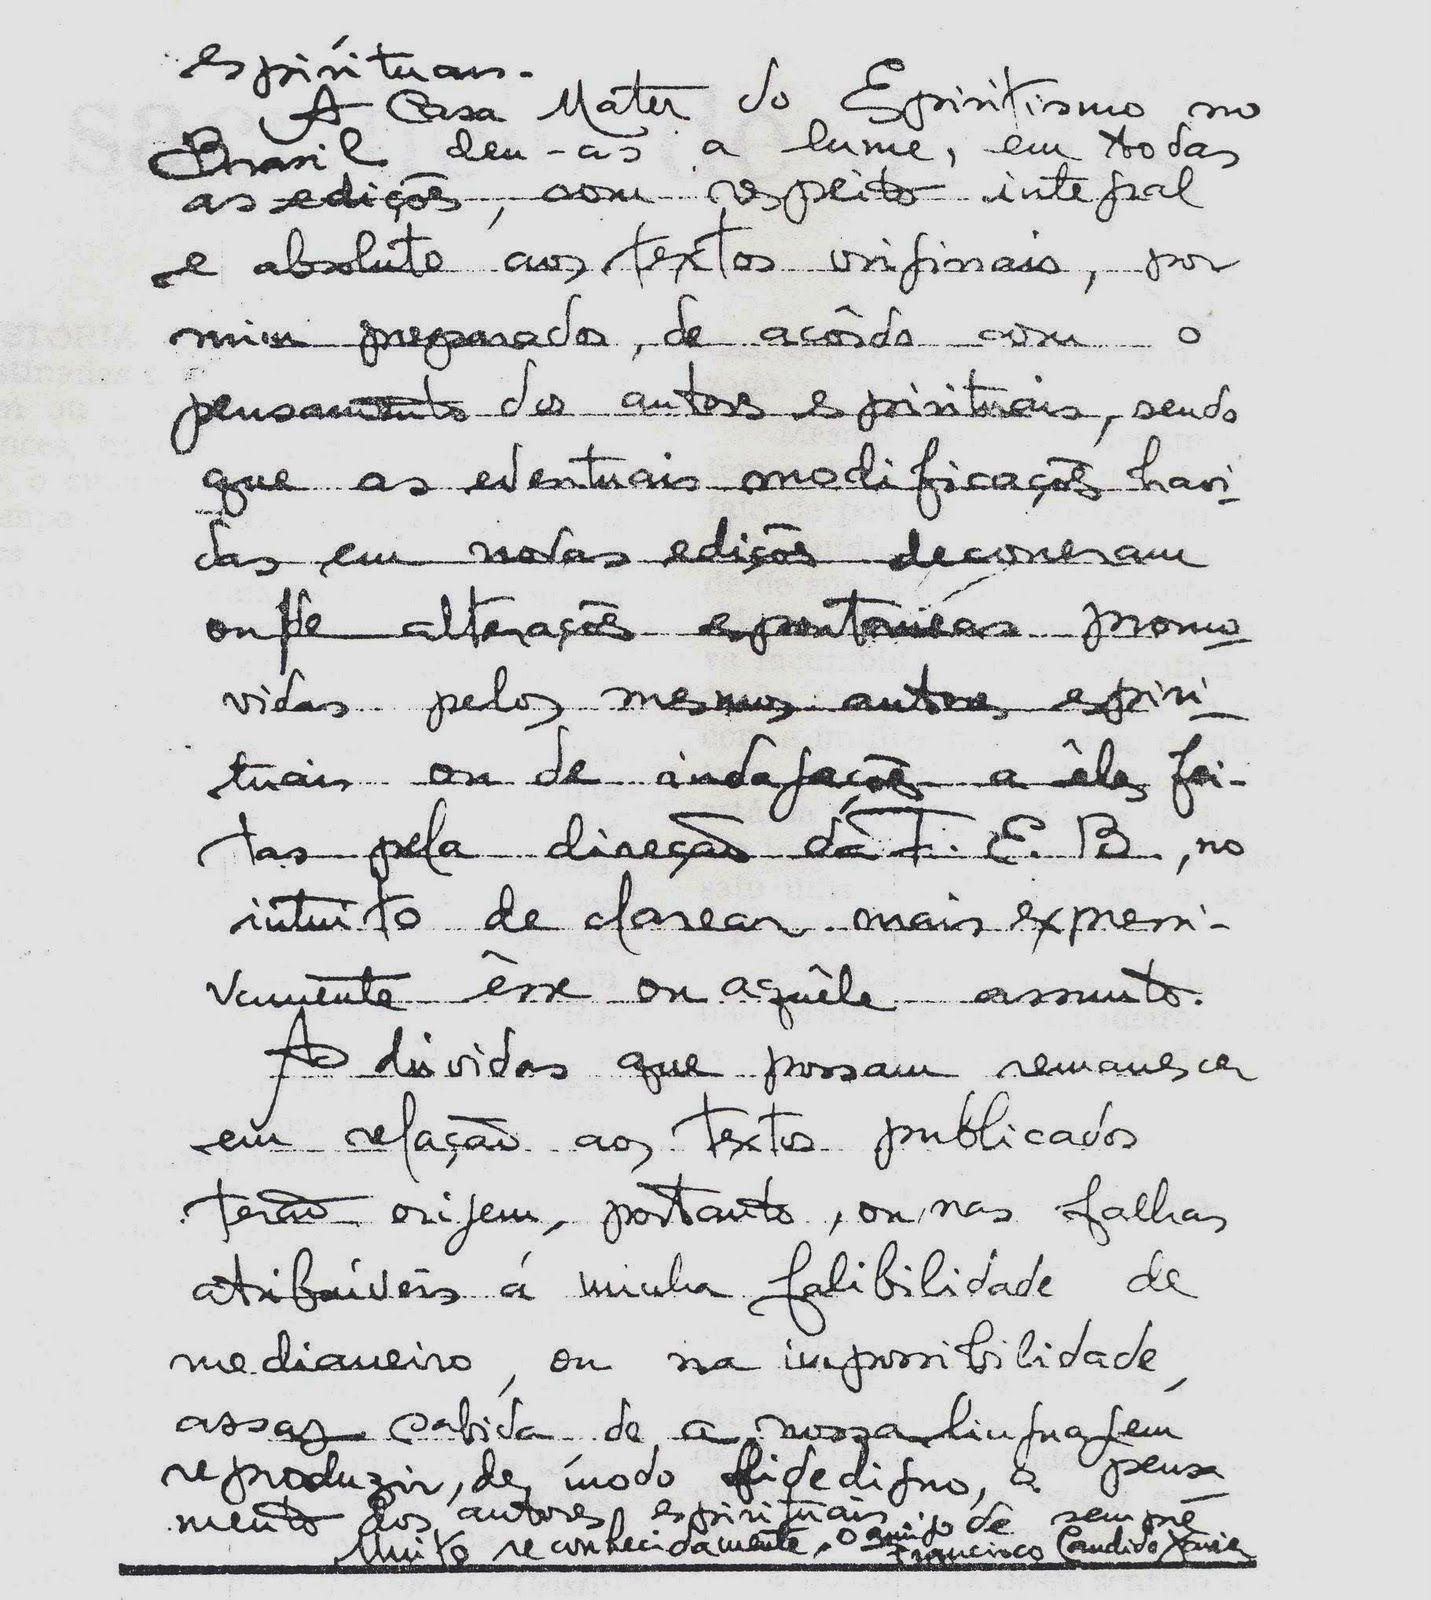 espirituais.
A Casa Mater do Espiritismo no
Brasil deu-as a lume, em todas
as edições, com respeito integral
e absoluto aos textos originais, por
mim preparados, de acôrdo com o
pensamento dos autores espirituais, sendo
que as eventuais modificações havi-
das em novas edições decorreram
ou de alterações espontâneas promo-
vidas pelos mesmos autores espiri-
tuais ou de indagações a êles fei-
tas pela direção da F. E. B., no
intuito de clarear mais expressi-
vamente êsse ou aquêle assunto.
As dúvidas que possam remanescer
em relação aos textos publicados
terão origem, portanto, ou nas falhas
atribuíveis á minha falibilidade de
medianeiro, ou na impossibilidade,
assaz cabida de a nossa linguagem
reproduzir, de modo fidedigno, o pensa-
mento dos autores espirituais.
Muito reconhecidamente, o amigo de sempre
Francisco Candido Xavier